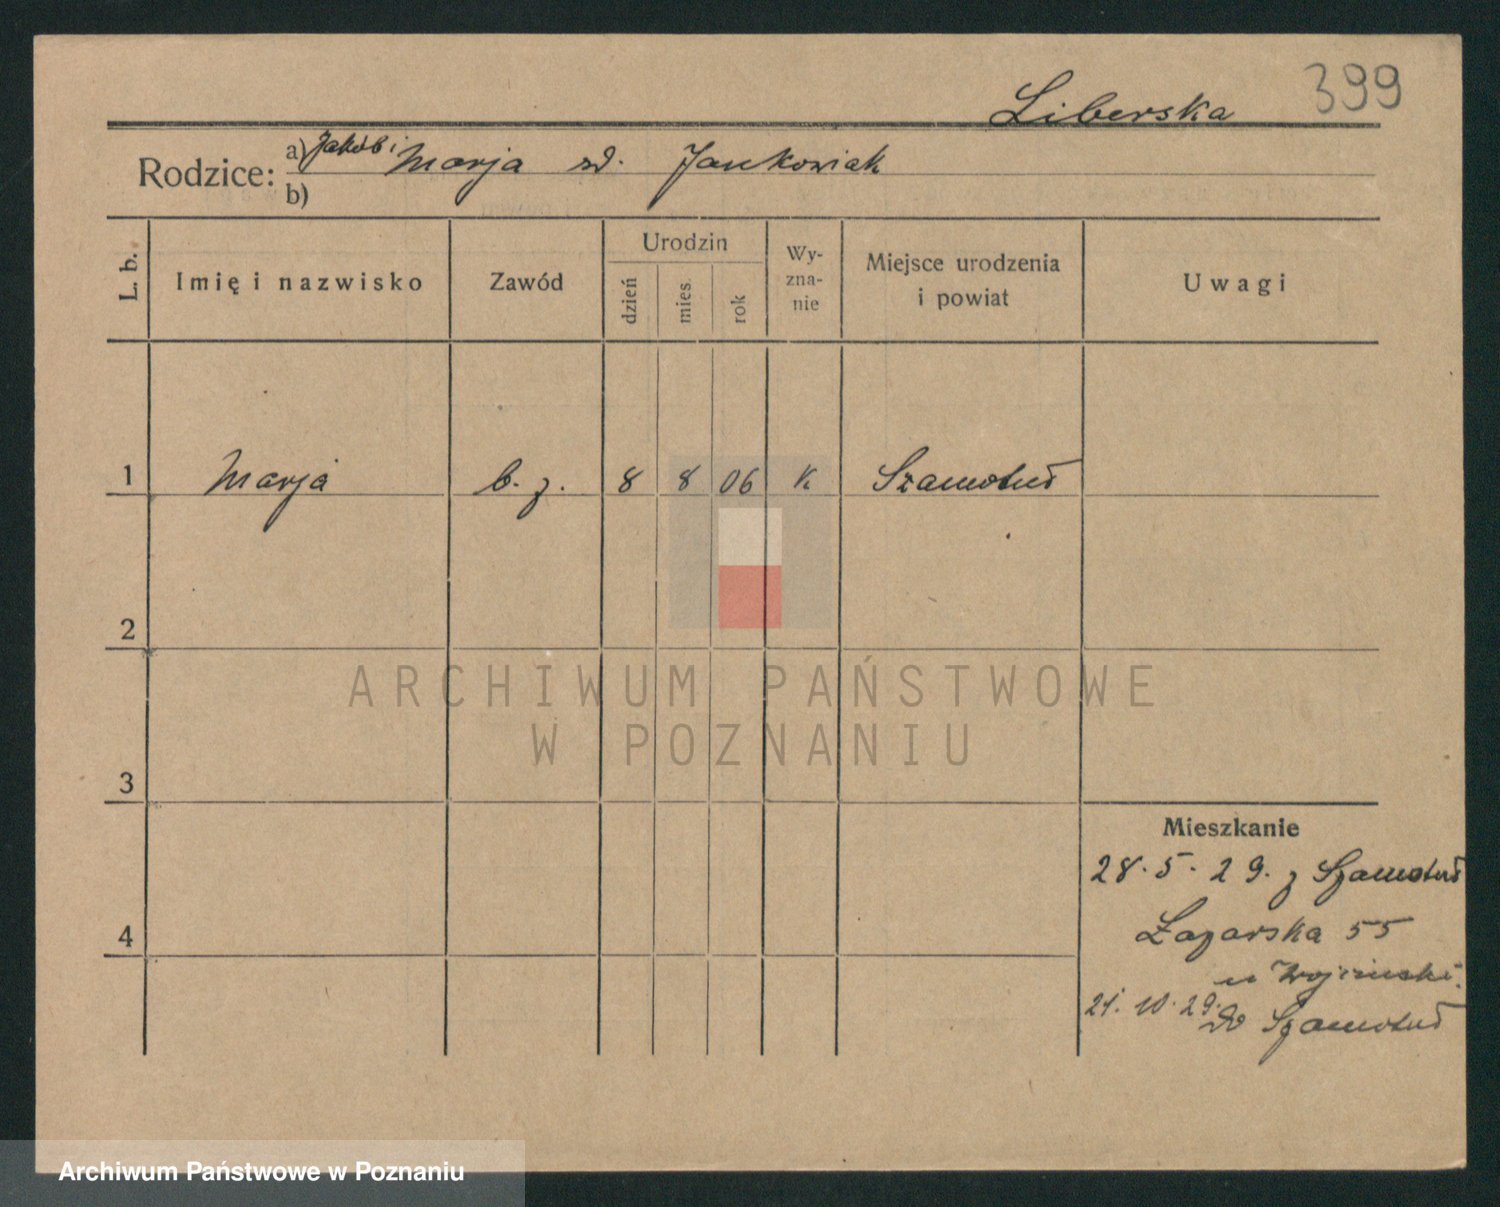 Liberska 399
Rodzice: a) Jakób i Marja zd. Jankowiak
b)
L. b. Imię i nazwisko Zawód Urodzin dzień mies. rok Wy-zna-nie Miejsce urodzenia i powiat Uwagi
1 Marja b. z. 8 8 06 K Szamotuł
2
ARCHIWUM PAŃSTWOWE
W POZNANIU
3
Mieszkanie
28. 5. 29. z Szamotuł
4
Łazarska 55
u
21. 10. 29. do Szamotuł
Archiwum Państwowe w Poznaniu